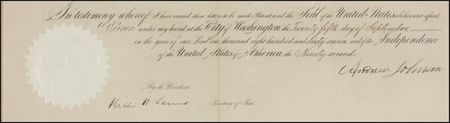 In testimony whereof I have caused these letters to be made Patent and the Seal of the United States to be hereunto affixed
Given under my hand at the City of Washington the twenty fifth day of September
in the year of our Lord one thousand eight hundred and sixty seven and of the Independence
of the United States of America, the Ninety second.
Andrew Johnson
By the President
Secretary of State